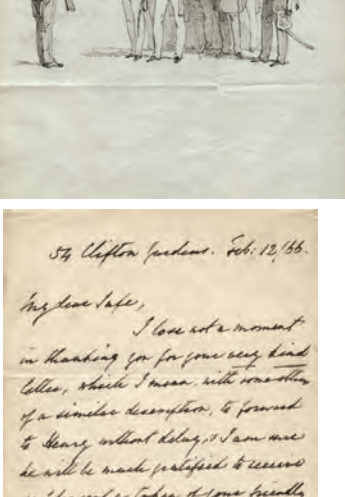 54 Clifton Gardens. Feb: 12/66.
My dear
I lose not a moment
in thanking you for your very kind
letter, which I mean, with some others
of a similar description, to forward
to Henry without delay, & I am sure
he will be much gratified to receive
of your friendly